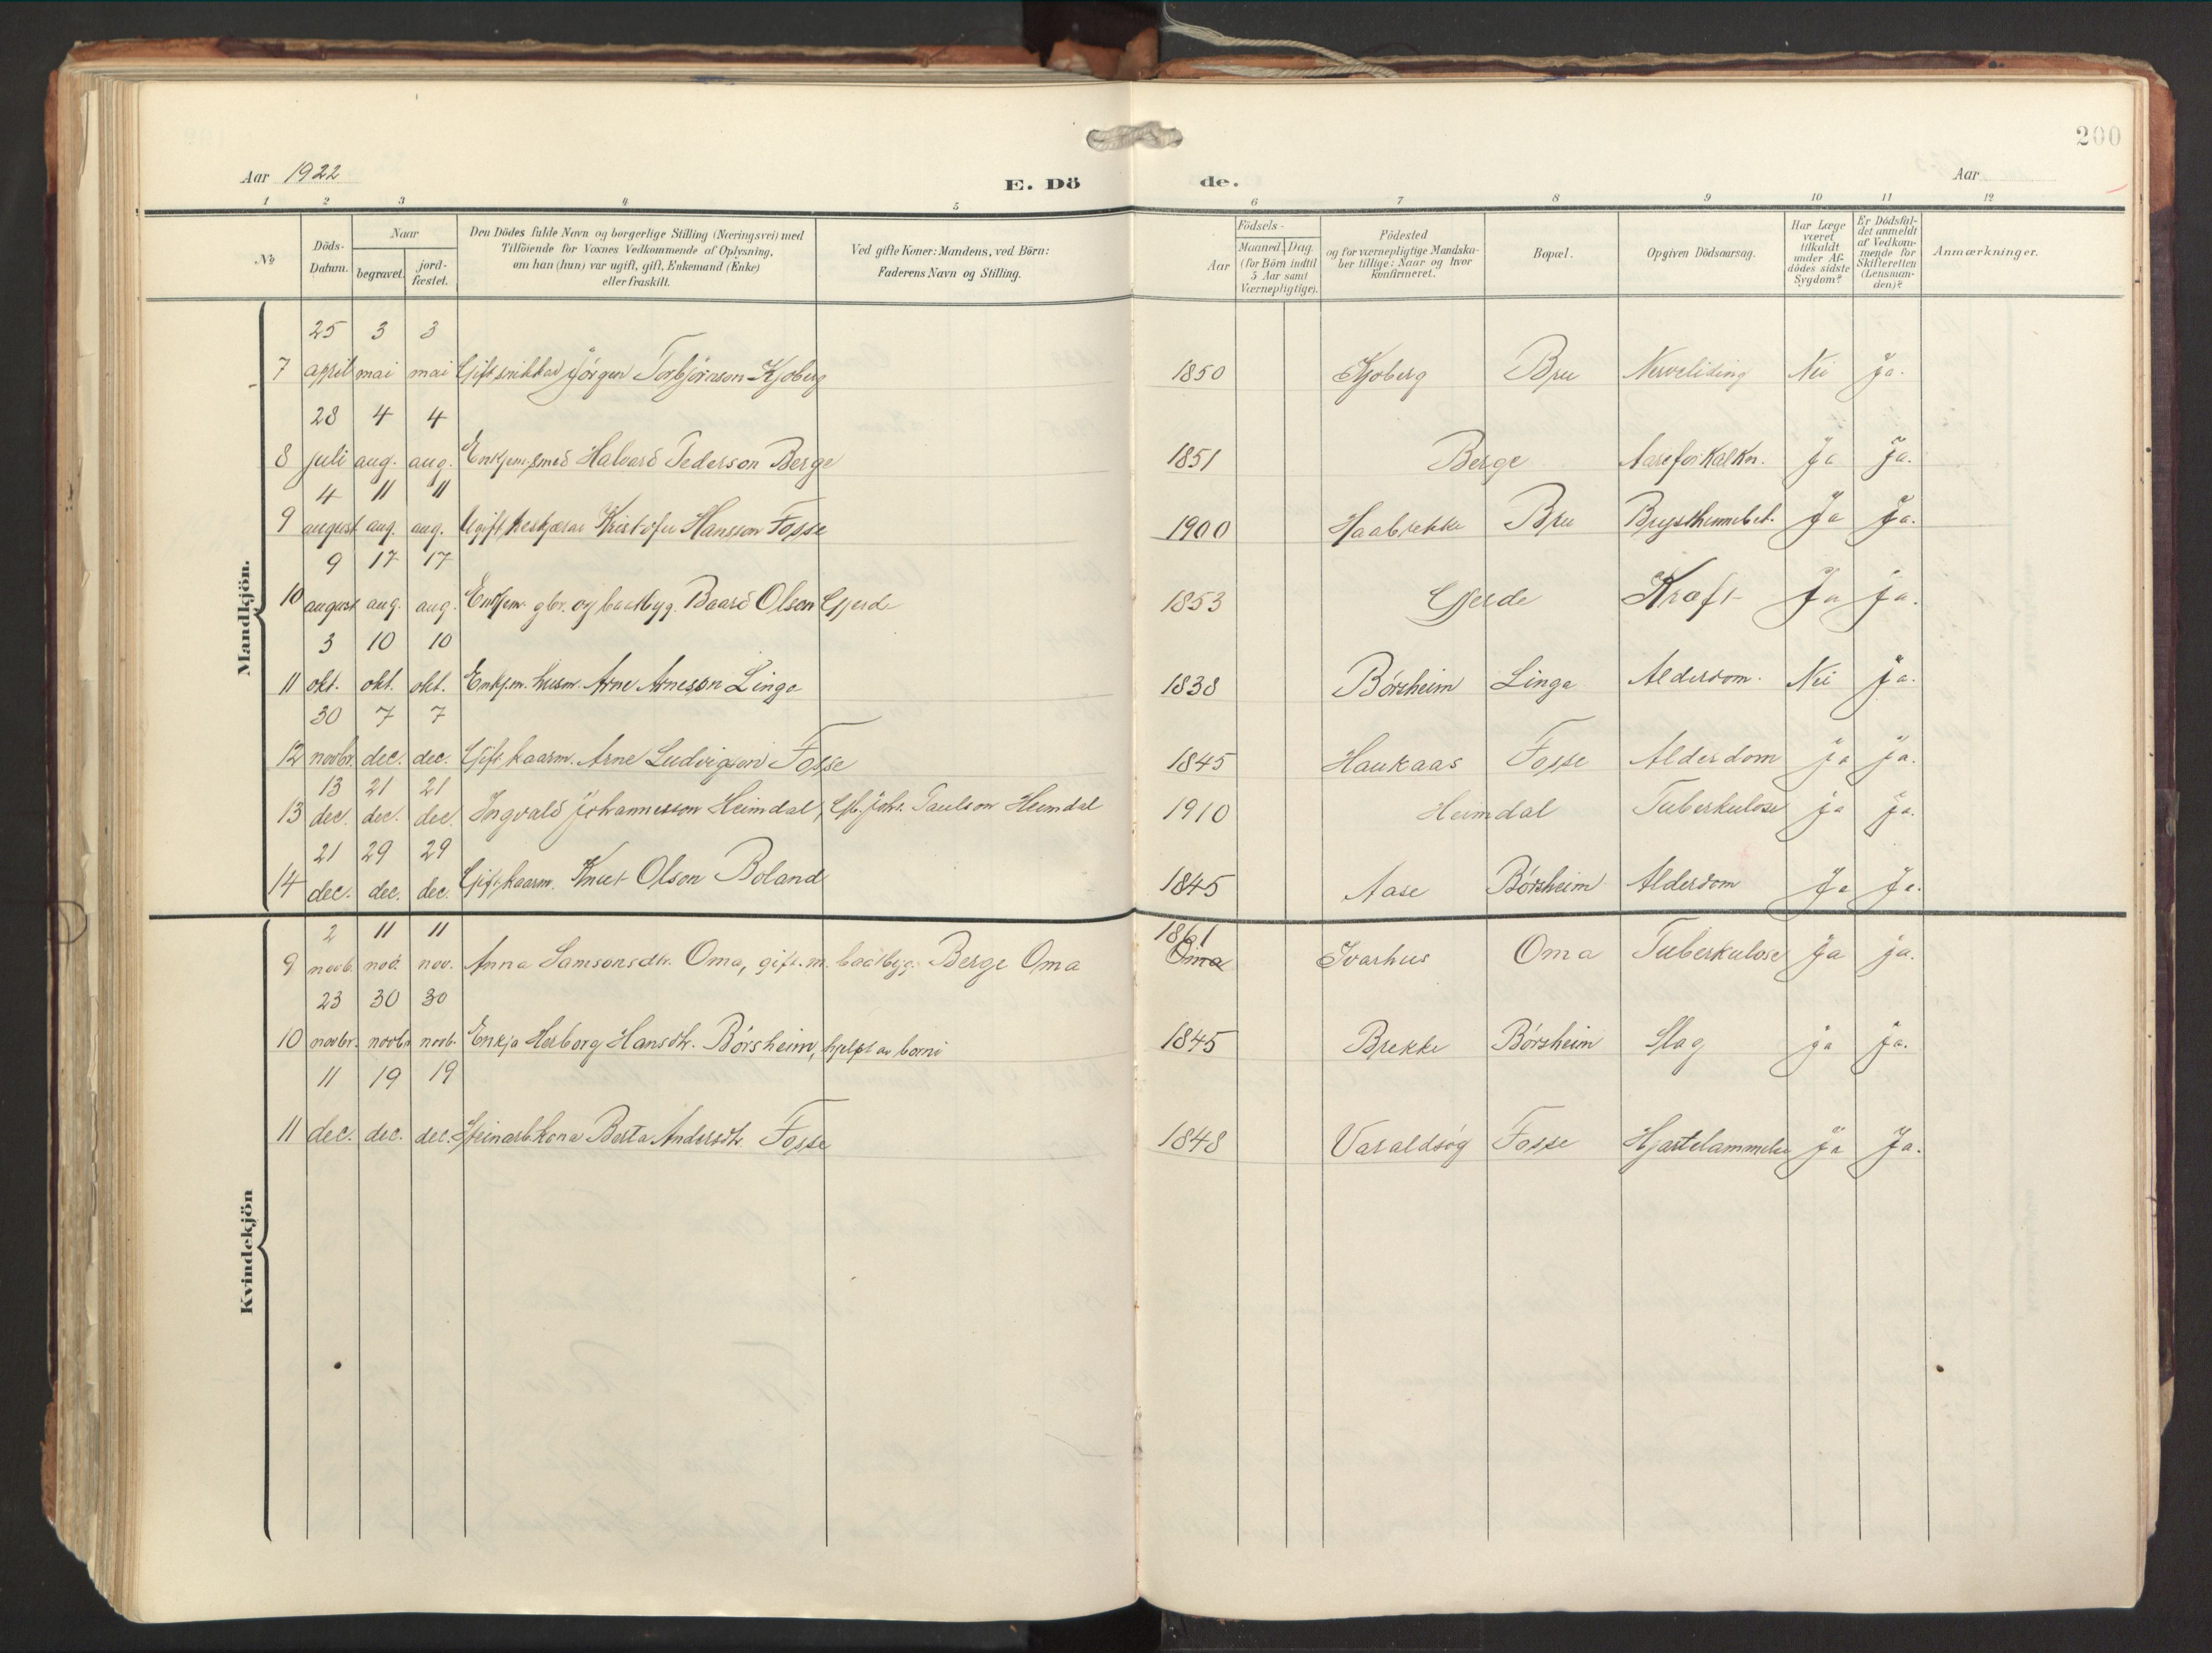 200
Aar 1922
E. Dö de.
Aar
1 2 3 4 5 6 7 8 9 10 11 12
No
Döds-Datum.
Naar
begravet.
jord-fæstet.
Den Dödes fulde Navn og borgerlige Stilling (Næringsvei) med
Tilföiende for Voxnes Vedkommende af Oplysning,
om han (hun) var ugift, gift, Enkemand (Enke)
eller fraskilt.
Ved gifte Koner: Mandens, ved Börn:
Faderens Navn og Stilling.
Födsels-
Aar
Maaned. Dag.
(for Börn indtil
5 Aar samt
Værnepligtige).
Födested
og for værnepligtige Mandska-
ber tillige: Naar og hvor
konfirmeret.
Bopæl.
Opgiven Dödsaarsag.
Har Læge
været
tilkaldt
under Af-
dödes sidste
Sygdom?
Er Dödsfal-
det anmeldt
af Vedkom-
mende for
Skifteretten
(Lensman-
den)?
Anmærkninger.
Mandkjön.
25 3 3
7 april mai mai Gift snikkar Jörgen Torbjörnson Kjoberg 1850 Kjoberg Bru Nei Ja.
28 4 4
8 juli aug. aug. Enkjem. smed Halvard Pederson Berge 1851 Berge Aareforkalkn. Ja Ja.
4 11 11
9 august aug. aug. Ugift Kristofer Hansson Fosse 1900 Bru Ja Ja.
9 17 17
10 august aug. aug. Enkjem. gbr. og baatbyg. Baard Olson Gjerde 1853 Gjerde Kræft Ja Ja.
3 10 10
11 okt. okt. okt. Enkjem. husm. Arne Arneson Linga 1838 Börsheim Linga Alderdom. Nei Ja.
30 7 7
12 novbr. dec. dec. Gift kaarm. Arne Ludvigson Fosse 1845 Haukaas Fosse Alderdom Ja Ja.
13 21 21
13 dec. dec. dec. Ingvald Johannesson Heimdal, Gb. Joh. Paulson Heimdal 1910 Heimdal Tuberkulose Ja Ja.
21 29 29
14 dec. dec. dec. Gift kaarm. Knut Olson Boland 1845 Aase Börsheim Alderdom Ja Ja.
Kvindekjön
2 11 11
9 novb. nov. nov. Anna Samsonsdtr. Oma, gift m. baatbyg. Berge Oma 1861 Oma Ivarhus Oma Tuberkulose Ja ja.
23 30 30
10 novbr. novbr. novb. Enkja Herborg Hansdtr. Börsheim, hjelpt av borni 1845 Brekke Börsheim Slag ja Ja.
11 19 19
11 dec. dec. dec. Berta Andersdtr Fosse 1848 Varaldsöy Fosse Hjartelammelse Ja Ja.